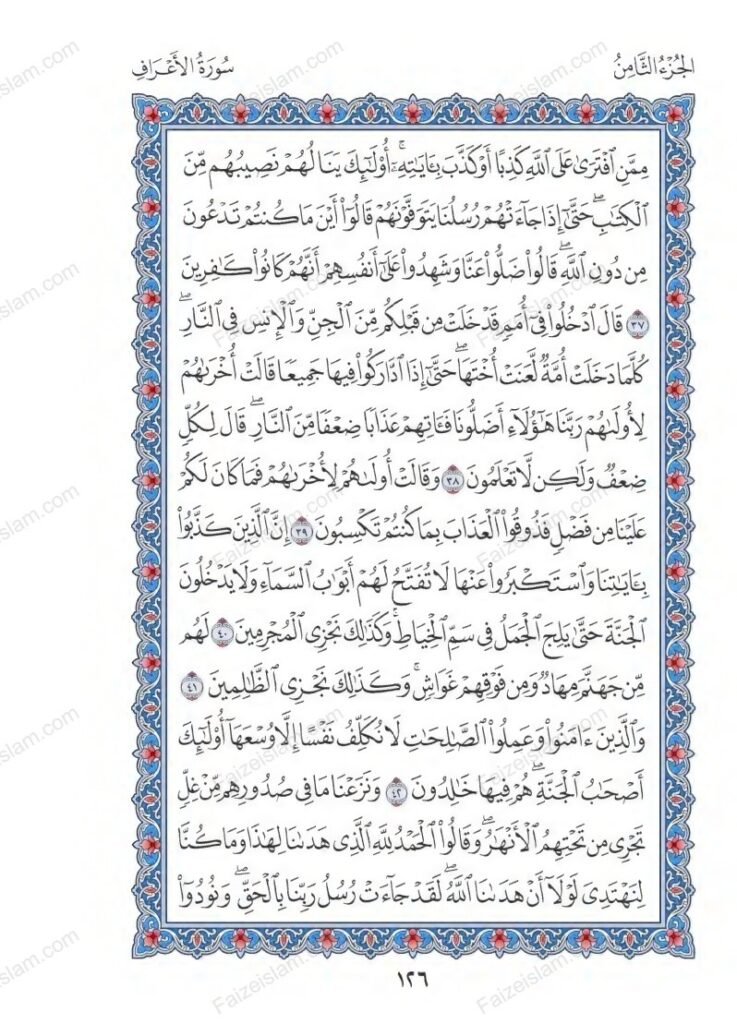 الجُزْءُ الثَّامِنُ
سُورَةُ الأَعْرَافِ
مِمَّنِ ٱفْتَرَىٰ عَلَى ٱللَّهِ كَذِبًا أَوْ كَذَّبَ بِـَٔايَـٰتِهِۦٓ ۚ أُو۟لَـٰٓئِكَ يَنَالُهُمْ نَصِيبُهُم مِّنَ
ٱلْكِتَـٰبِ ۖ حَتَّىٰٓ إِذَا جَآءَتْهُمْ رُسُلُنَا يَتَوَفَّوْنَهُمْ قَالُوٓا۟ أَيْنَ مَا كُنتُمْ تَدْعُونَ
مِن دُونِ ٱللَّهِ ۖ قَالُوا۟ ضَلُّوا۟ عَنَّا وَشَهِدُوا۟ عَلَىٰٓ أَنفُسِهِمْ أَنَّهُمْ كَانُوا۟ كَـٰفِرِينَ
٣٧ قَالَ ٱدْخُلُوا۟ فِىٓ أُمَمٍ قَدْ خَلَتْ مِن قَبْلِكُم مِّنَ ٱلْجِنِّ وَٱلْإِنسِ فِى ٱلنَّارِ ۖ
كُلَّمَا دَخَلَتْ أُمَّةٌ لَّعَنَتْ أُخْتَهَا ۖ حَتَّىٰٓ إِذَا ٱدَّارَكُوا۟ فِيهَا جَمِيعًا قَالَتْ أُخْرَىٰهُمْ
لِأُولَىٰهُمْ رَبَّنَا هَـٰٓؤُلَآءِ أَضَلُّونَا فَـَٔاتِهِمْ عَذَابًا ضِعْفًا مِّنَ ٱلنَّارِ ۖ قَالَ لِكُلٍّ
ضِعْفٌ وَلَـٰكِن لَّا تَعْلَمُونَ ٣٨ وَقَالَتْ أُولَىٰهُمْ لِأُخْرَىٰهُمْ فَمَا كَانَ لَكُمْ
عَلَيْنَا مِن فَضْلٍ فَذُوقُوا۟ ٱلْعَذَابَ بِمَا كُنتُمْ تَكْسِبُونَ ٣٩ إِنَّ ٱلَّذِينَ كَذَّبُوا۟
بِـَٔايَـٰتِنَا وَٱسْتَكْبَرُوا۟ عَنْهَا لَا تُفَتَّحُ لَهُمْ أَبْوَٰبُ ٱلسَّمَآءِ وَلَا يَدْخُلُونَ
ٱلْجَنَّةَ حَتَّىٰ يَلِجَ ٱلْجَمَلُ فِى سَمِّ ٱلْخِيَاطِ ۚ وَكَذَٰلِكَ نَجْزِى ٱلْمُجْرِمِينَ ٤٠ لَهُم
مِّن جَهَنَّمَ مِهَادٌ وَمِن فَوْقِهِمْ غَوَاشٍ ۚ وَكَذَٰلِكَ نَجْزِى ٱلظَّـٰلِمِينَ ٤١
وَٱلَّذِينَ ءَامَنُوا۟ وَعَمِلُوا۟ ٱلصَّـٰلِحَـٰتِ لَا نُكَلِّفُ نَفْسًا إِلَّا وُسْعَهَآ أُو۟لَـٰٓئِكَ
أَصْحَـٰبُ ٱلْجَنَّةِ ۖ هُمْ فِيهَا خَـٰلِدُونَ ٤٢ وَنَزَعْنَا مَا فِى صُدُورِهِم مِّنْ غِلٍّ
تَجْرِى مِن تَحْتِهِمُ ٱلْأَنْهَـٰرُ ۖ وَقَالُوا۟ ٱلْحَمْدُ لِلَّهِ ٱلَّذِى هَدَىٰنَا لِهَـٰذَا وَمَا كُنَّا
لِنَهْتَدِىَ لَوْلَآ أَنْ هَدَىٰنَا ٱللَّهُ ۖ لَقَدْ جَآءَتْ رُسُلُ رَبِّنَا بِٱلْحَقِّ ۖ وَنُودُوٓا۟
١٢٦
Faizeislam.com